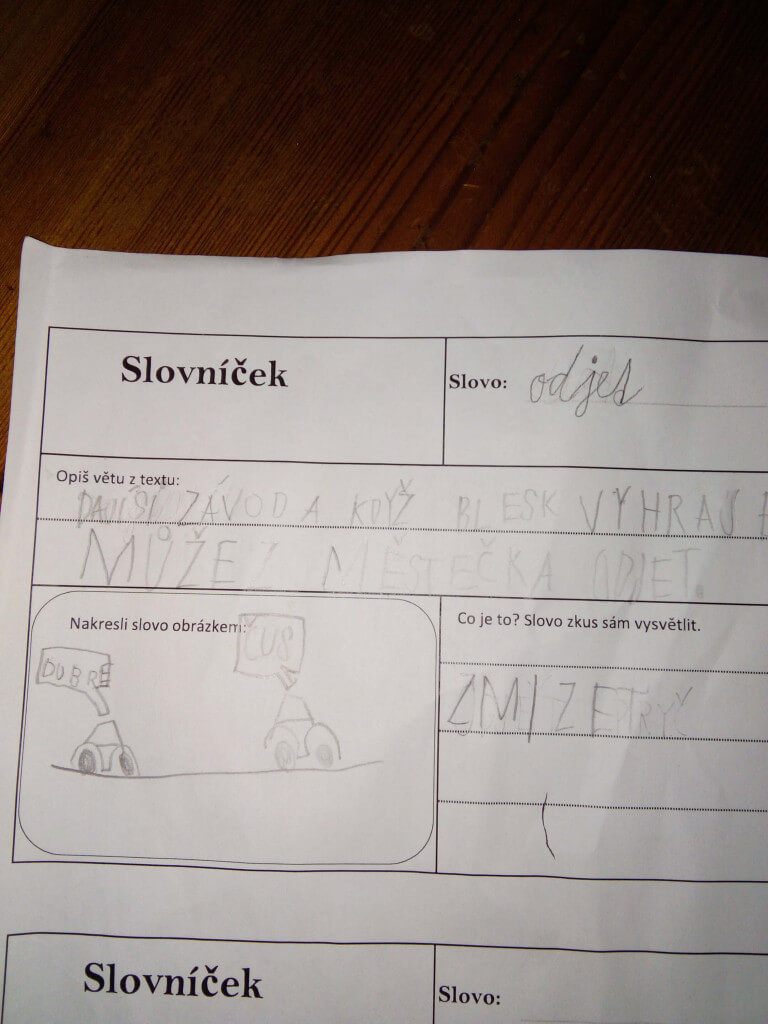 Slovníček
Slovo: odjet
Opiš větu z textu:
DALŠÍ ZÁVOD A KDYŽ BLESK VYHRAJ
MŮŽE Z MĚSTEČKA ODJET.
Nakresli slovo obrázkem:
ČUS
DOBRE
Co je to? Slovo zkus sám vysvětlit.
ZMIZET PRYČ
Slovníček
Slovo: